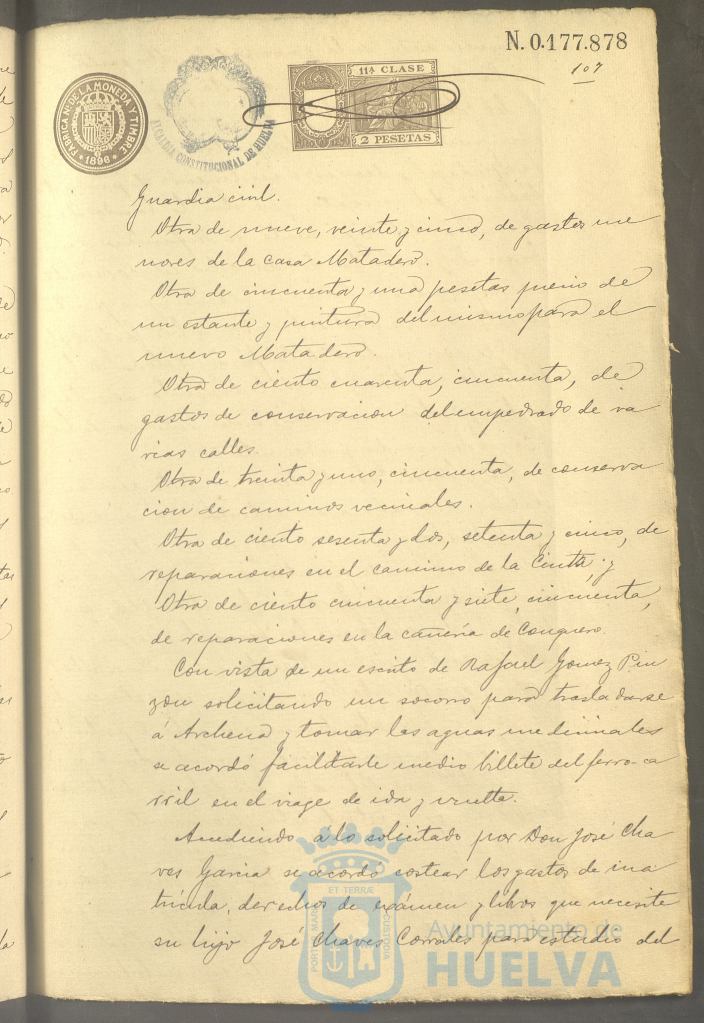 N. 0.177.878
107
FABRICA NL DE LA MONEDA Y TIMBRE
* 1896 *
ALCALDIA CONSTITUCIONAL DE HUELVA
11ª CLASE
2 PESETAS
Guardia civil.
Otra de nueve, veinte y cinco, de gastos me
nores de la casa Matadero.
Otra de cincuenta y una pesetas precio de
un estante y pintura del mismo para el
nuevo Matadero.
Otra de ciento cuarenta, cincuenta, de
gastos de conservacion del empedrado de va
rias calles.
Otra de treinta y uno, cincuenta, de conserva
cion de caminos vecinales.
Otra de ciento sesenta y dos, setenta y cinco, de
reparaciones en el camino de la Cinta; y
Otra de ciento cincuenta y siete, cincuenta,
de reparaciones en la cañeria de Conquero.
Con vista de un escrito de Rafael Gomez Pin
zon solicitando un socorro para trasladarse
á Archena y tomar las aguas medicinales
se acordó facilitarle medio billete del ferro-ca
rril en el viage de ida y vuelta.
Accediendo a lo solicitado por Don José Cha
ves Garcia se acordó costear los gastos de ma
trícula, derechos de exámen y libros que necesite
su hijo José Chaves Corrales para estudio del
PORTUS MARIS
ET TERRÆ
CUSTODIA
Ayuntamiento de
HUELVA